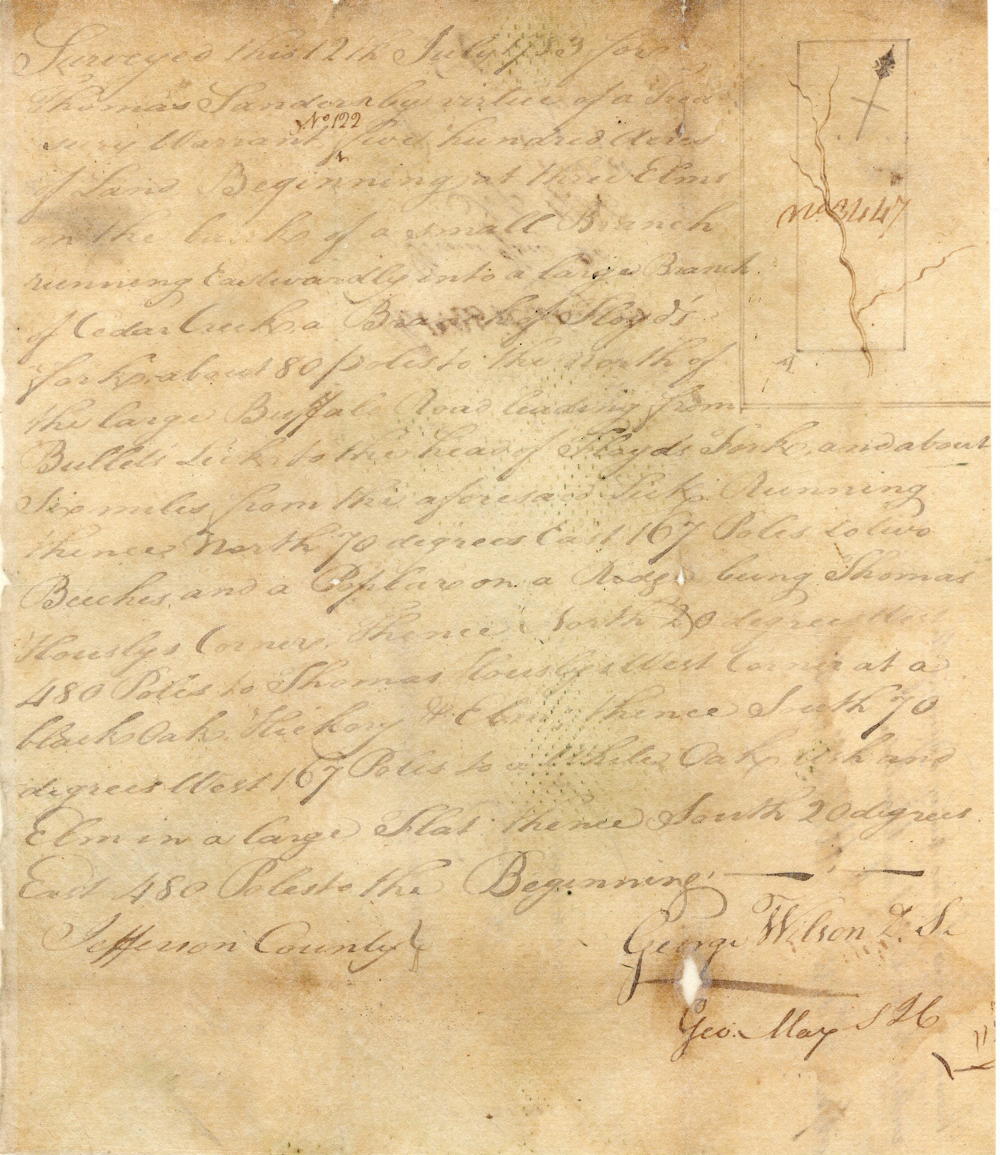 Surveyed this 12th July 1783 for
Thomas Sanders by virtue of a Trea
sury Warrant five hundred Acres
No. 122
of Land Beginning at three Elms
on the bank of a small Branch
running Eastwardly into a large Branch
of Cedar Creek a Branch of Floyd's
fork about 80 poles to the north of
the large Buffalo Road leading from
Bullits Lick to the head of Floyds Fork, and about
Six miles from the aforesaid Lick Running
thence North 70 degrees East 167 Poles to two
Beeches, and a Poplar on a Ridge being Thomas
Houslys Corner, Thence North 20 degrees West
480 Poles to Thomas Houslys West Corner at a
black Oak, Hickory & Elm, thence South 70
degrees West 167 Poles to a White Oak, Ash and
Elm in a large Flat thence South 20 degrees
East 480 Poles to the Beginning.
Jefferson County
George Wilson D. S.
Geo. May
No 3447